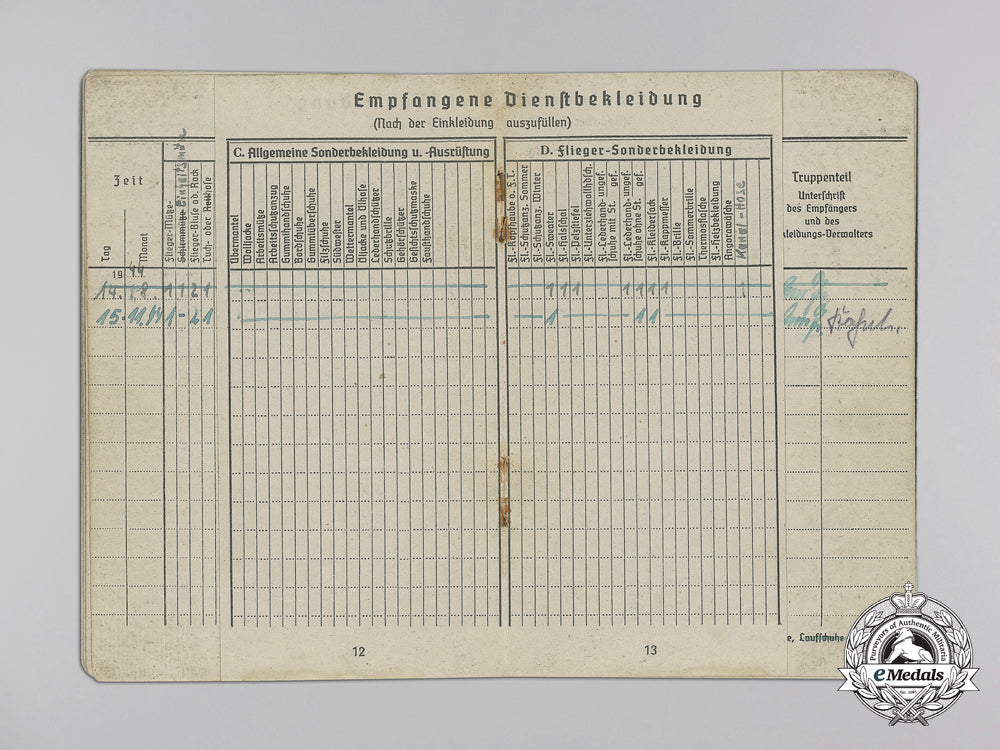 Empfangene Dienstbekleidung
(Nach der Einkleidung auszufüllen)
Zeit
Tag
Monat
19 44
Flieger-Mütze-
Einheitsmütze
Flieger-Bluse od. Rock
Tuch- oder Reithose
C. Allgemeine Sonderbekleidung u. -Ausrüstung
Übermantel
Wolljacke
Arbeitsmütze
Arbeitsschutzanzug
Gummihandschuhe
Bordschuhe
Gummiüberschuhe
Filzschuhe
Südwester
Wettermantel
Öljacke und Ölhose
Lederhandschützer
Schutzbrille
Gehörschützer
Gesichtsschutzmaske
Fausthandschuhe
D. Flieger-Sonderbekleidung
Fl.-Kopfhaube o. F.T.
Fl.-Schutzanz. Sommer
Fl.-Schutzanz. Winter
Fl.-Sweater
Fl.-Halsschal
Fl.-Pelzstiefel
Fl.-Unterziehwollhdsch.
Fl.-Lederhand- ungef.
schuhe mit St. gef.
Fl.-Lederhand- ungef.
schuhe ohne St. gef.
Fl.-Kleidersack
Fl.-Kappmesser
Fl.-Brille
Fl.-Sommerbrille
Thermosflasche
Fl.-Heizbekleidung
Angorawäsche
Kanal-Hose
Truppenteil
Unterschrift
des Empfängers
und des
kleidungs-Verwalters
14. 8. 1 1 2 1 1 1 1 1 1 1 1 1
15. 11.44 1 - 2 1 1 1 1
12
13
e, Laufschuhe
Purveyors of Authentic Militaria
eMedals